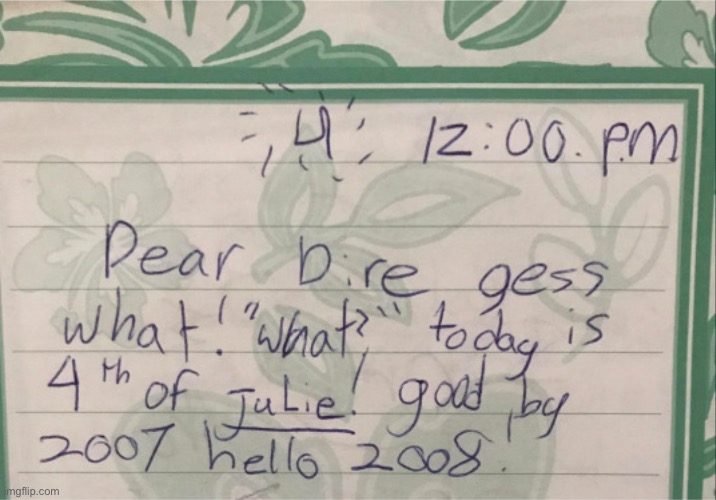 4 12:00. P.M
Dear Dire gess
what! "what?" today is
4th of Julie! good by
2007 hello 2008!
imgflip.com